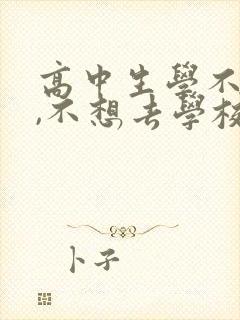 高中生學不
,不想去學校
卜子